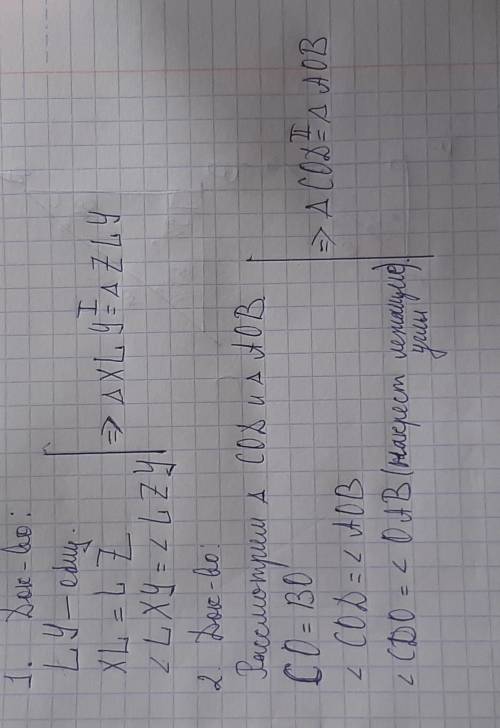 1. Док-во:
LY — общ.
XL = LZ
∠LXY = ∠LZY
=> ΔXLY I= ΔZLY
2. Док-во:
Рассмотрим Δ COD и Δ AOB
CO = BO
∠COD = ∠AOB
∠CDO = ∠OAB (накрест лежащие).
углы
=> ΔCOD II= ΔAOB